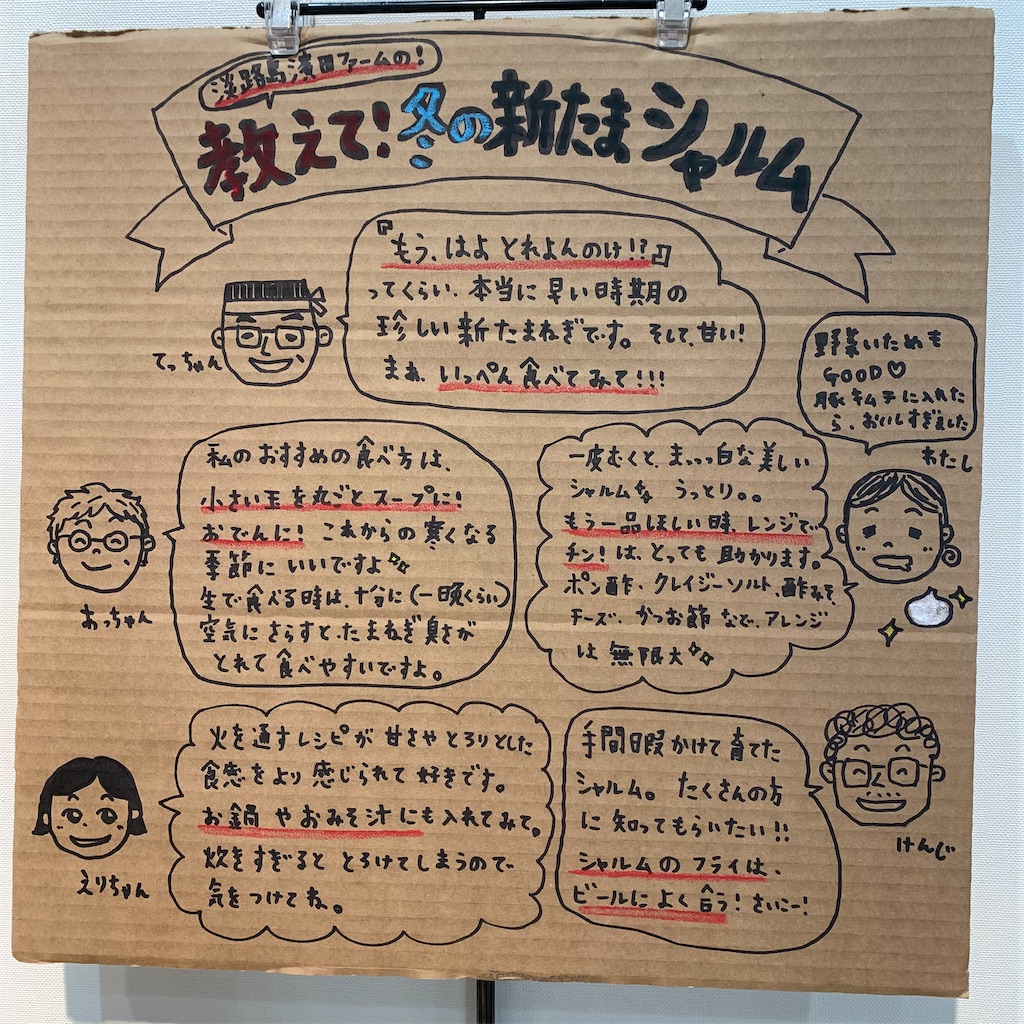 淡路島濱田ファームの!
教えて!冬の新たまシャルム
『もう、はよ とれよんのけ!?』
ってくらい、本当に早い時期の
珍しい新たまねぎです。そして、甘い!
まぁ、いっぺん食べてみて!!!
てっちゃん
野菜いためも
GOOD♡
豚キムチに入れた
ら、おいしすぎました
わたし
私のおすすめの食べ方は、
小さい玉を丸ごとスープに!
おでんに! これからの寒くなる
季節にいいですよ
生で食べる時は、十分に(一晩くらい)
空気にさらすと、たまねぎ臭さが
とれて食べやすいですよ。
あっちゃん
一皮むくと、まっっっ白な美しい
シャルム うっとり。。
もう一品ほしい時、レンジで
チン! は、とっても助かります。
ポン酢、クレイジーソルト、酢みそ、
チーズ、かつお節など、アレンジ
は無限大
火を通すレシピが甘さやとろりとした
食感をより感じられて好きです。
お鍋やおみそ汁にも入れてみて。
炊きすぎるととろけてしまうので
気をつけてね。
えりちゃん
手間暇かけて育てた
シャルム。たくさんの方
に知ってもらいたい!!
シャルムのフライは、
ビールによく合う!さいこー!
けんじ